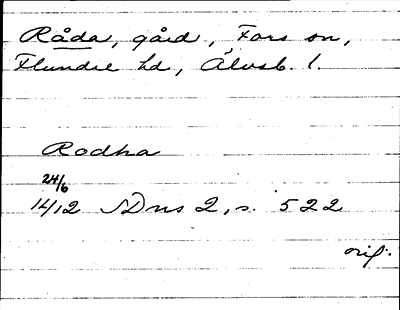 Råda, gård, Fors sn,
Flundre hd, Älvsb. l.
Rodha
24/6
1412 SDns 2, s. 522
orig.